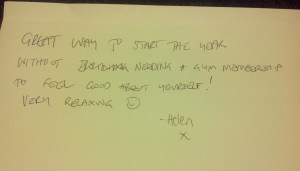 GREAT WAY TO START THE YEAR
WITHOUT NEEDING A GYM MEMBERSHIP
TO FEEL GOOD ABOUT YOURSELF!
VERY RELAXING ☺
- Helen
x